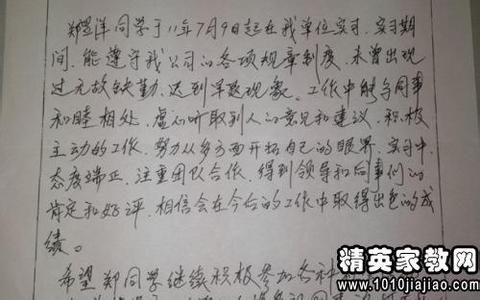 郑昱洋同学于11年7月9日起在我单位实习，实习期
间，能遵守我公司的各项规章制度，未曾出现
过无故缺勤，迟到早退现象。工作中能与同事
和睦相处，虚心听取别人的意见和建议，积极
主动的工作，努力从多方面开拓自己的眼界，实习中
态度端正，注重团队合作，得到领导和同事们的
肯定和好评，相信会在今后的工作中取得出色的成
绩。
希望郑同学继续积极参加各种
精英家教网
www.1010jiajiao.com